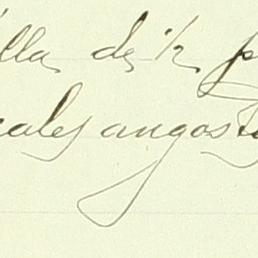 illa de ½ p
cales angosta